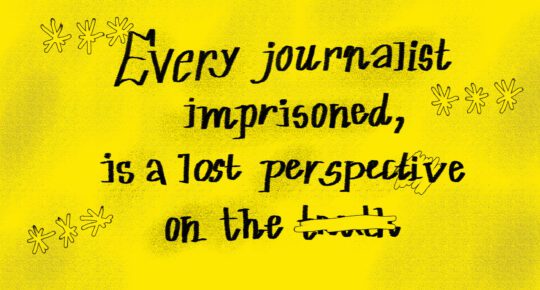 Every journalist
imprisoned,
is a lost perspective
on the truth